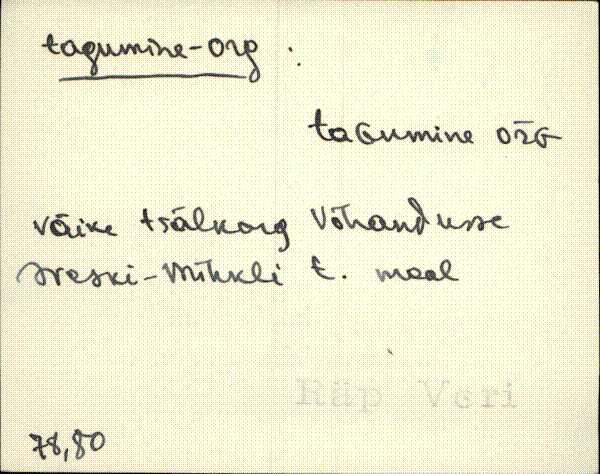 tagumine-org :
taGumine ōrG
väike tsälkorg Võhandusse
Areski-Mihkli t. maal
Räp Veri
78,80